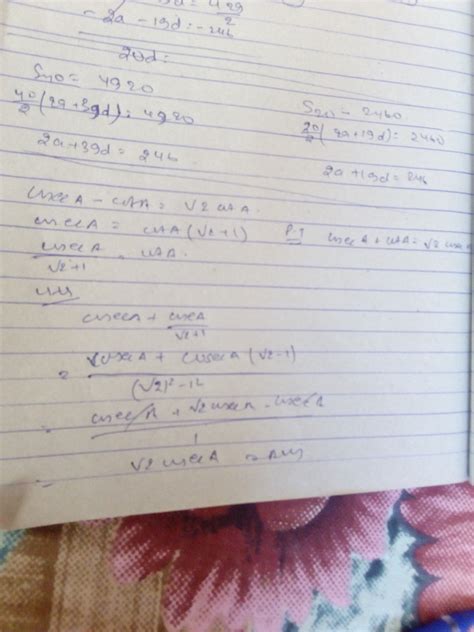 - 2a - 19d = - 246
20d =
S40 = 4920
40/2 (2a + 39d) = 4920
2a + 39d = 246
S20 = 2460
20/2 (2a + 19d) = 2460
2a + 19d = 246
cosecA - cotA = √2 cotA.
cosecA = cotA (√2 + 1)
P.T cosecA + cotA = √2 cosec
cosecA / √2 + 1 = cotA.
cosecA + cosecA / √2 + 1
= cosecA + cosecA (√2 - 1) / (√2)² - 1²
= cosecA + √2 cosecA - cosecA / 1
= √2 cosecA = Ans